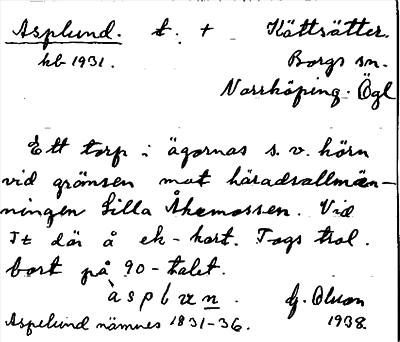 Asplund. t. + Kättsätter.
hb 1931. Borgs sn.
Norrköping. Ögl
Ett torp i ägornas s.v. hörn
vid gränsen mot häradsallmän-
ningen Lilla Åkemossen. Vid
It där å ek-kart. Togs trol.
bort på 90-talet.
àsplæn. G. Olson
Aspelund nämnes 1831-36. 1938.